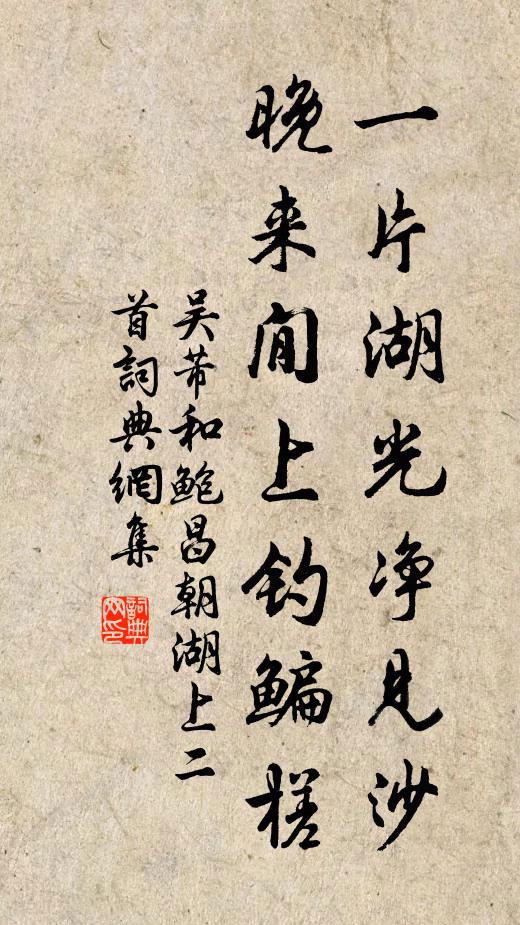 一片湖光净見沙
晚来间上钓鳊槎
吴芾和鲍昌朝湖上二
首詞典網集
詞典
网印